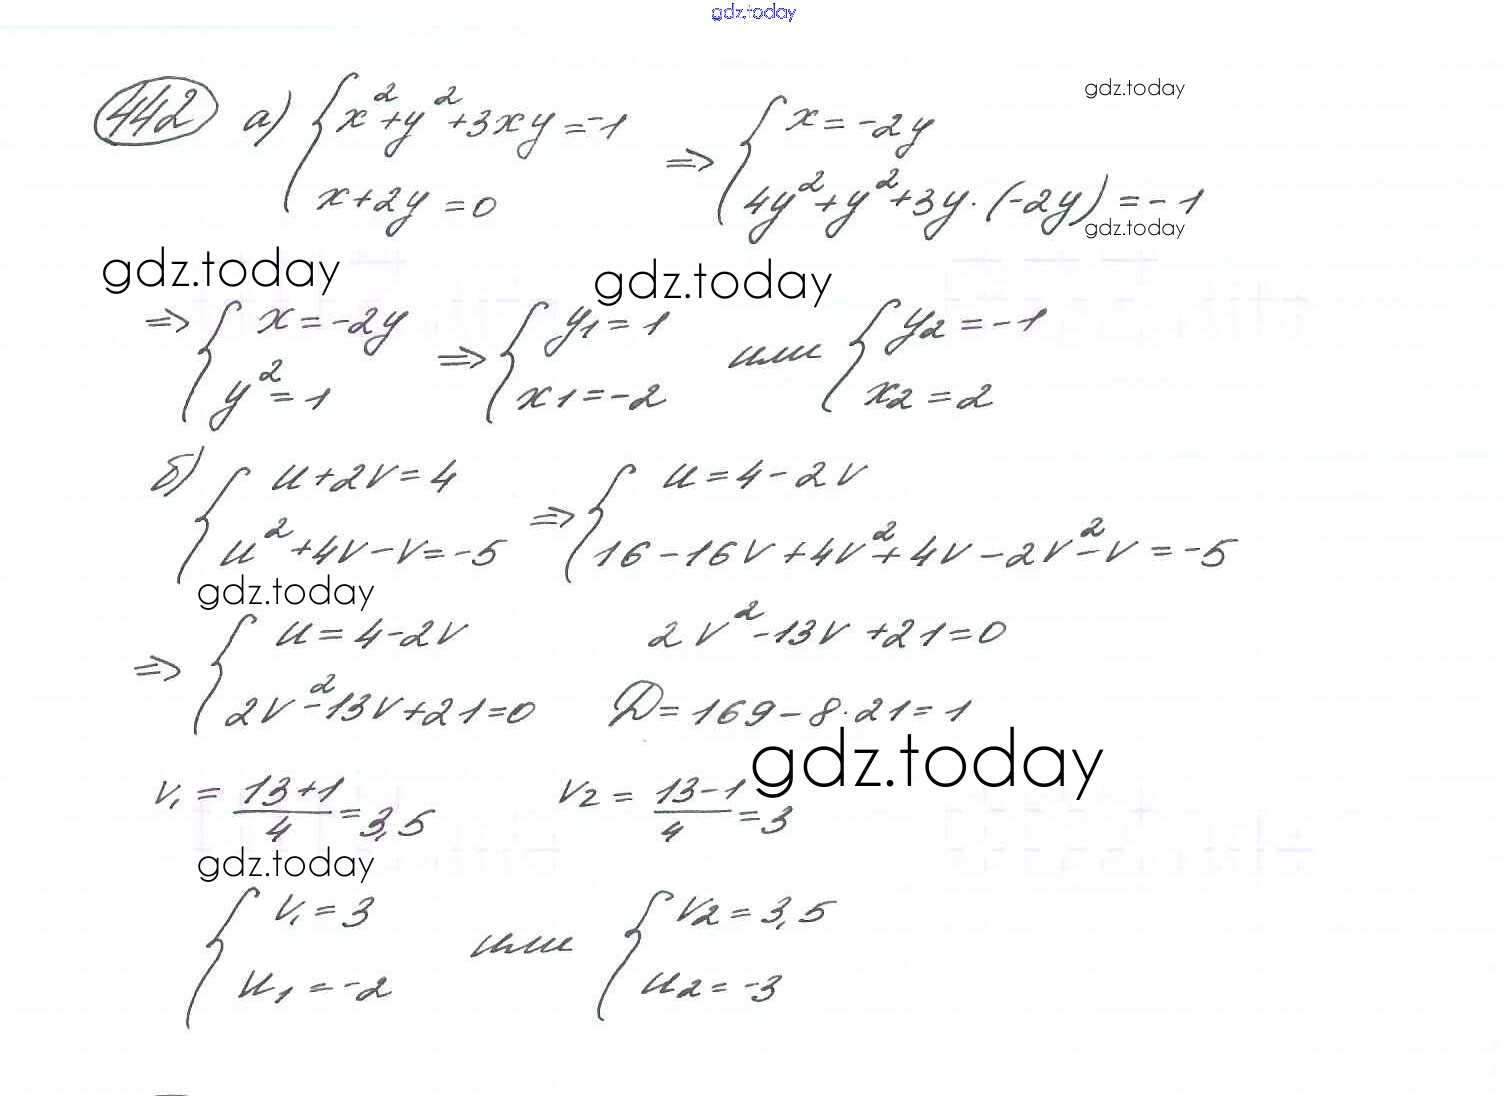 gdz.today
442 а) { x²+y²+3xy=-1 gdz.today
x+2y=0 ⇒ { x=-2y
4y²+y²+3y·(-2y)=-1
gdz.today
gdz.today gdz.today
⇒ { x=-2y ⇒ { y1=1 или { y2=-1
y²=1 x1=-2 x2=2
б) { u+2v=4 ⇒ { u=4-2v
u²+4v-v=-5 16-16v+4v²+4v-2v²-v=-5
gdz.today
⇒ { u=4-2v 2v²-13v+21=0
2v²-13v+21=0 D=169-8·21=1
gdz.today
v1=(13+1)/4=3,5 v2=(13-1)/4=3
gdz.today
{ v1=3 или { v2=3,5
u1=-2 u2=-3